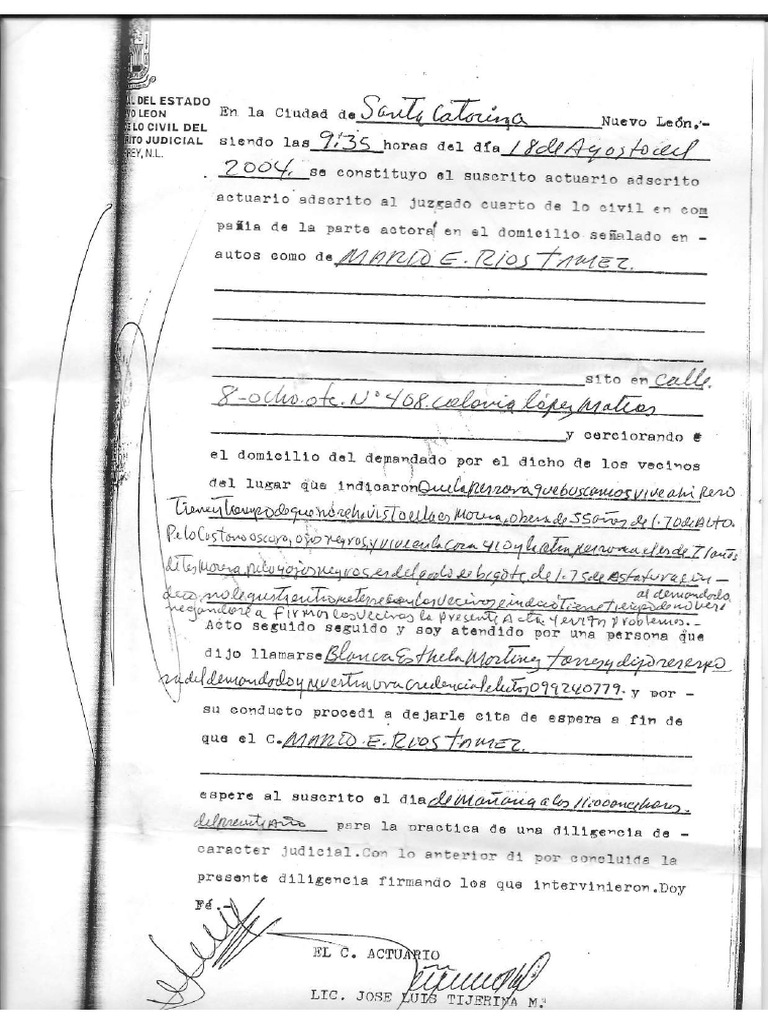 L DEL ESTADO
VO LEON
E LO CIVIL DEL
RITO JUDICIAL
REY, N.L.
En la Ciudad de Santa Catarina Nuevo León,-
siendo las 9:35 horas del día 18 de Agosto del
2004. se constituyo el suscrito actuario adscrito
actuario adscrito al juzgado cuarto de lo civil en com
pañia de la parte actora en el domicilio señalado en -
autos como de MARIO E. RIOS TAMEZ.
sito en calle
8-ocho. ote. N° 408. colonia lópez Mateos
y cerciorando e
el domicilio del demandado por el dicho de los vecinos
del lugar que indicaron Que la persona que buscamos vive ahi pero
tiene tiempo de que no se ha visto ella es Morena, obesa de 55 años de 1.70 de Alto.
Pelo Castano oscuro, ojos negros, y vive en la casa 410 y la otra persona el es de 71 años
de tes Morena, pelo y ojos negros, es delgado de bigote de 1.75 de estatura
no le gusta entrometerse con los vecinos e indicó tiene tiempo de no ver
al demandado
negandose a firmar los vecinos la presente Acta y evitar problemas.-
Acto seguido seguido y soy atendido por una persona que
dijo llamarse Blanca Esthela Martinez torres y dijo ser espo
sa del demandado y muestra una credencial elector 099240779. y por -
su conducto procedi a dejarle cita de espera a fin de
que el C. MARIO. E. RIOS TAMEZ.
espere al suscrito el dia de Mañana a las 11:00 once horas.
del presente Año para la practica de una diligencia de -
caracter judicial.Con lo anterior di por concluida la
presente diligencia firmando los que intervinieron.Doy
Fé.-
EL C. ACTUARIO
LIC. JOSE LUIS TIJERINA M.